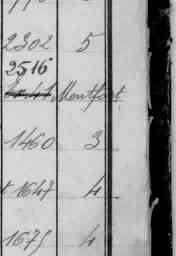 2302 5
2516
Montfort
1460 3
1647 4
1675 4